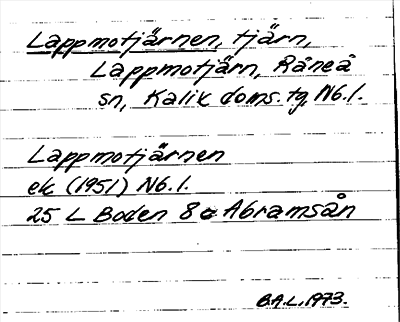 Lappmotjärnen, tjärn,
Lappmotjärn, Råneå
sn, Kalix doms. tg Nb.l.
Lappmotjärnen
ek (1951) Nb.l.
25 L Boden 8 a Abramsån
B.A.L. 1973.